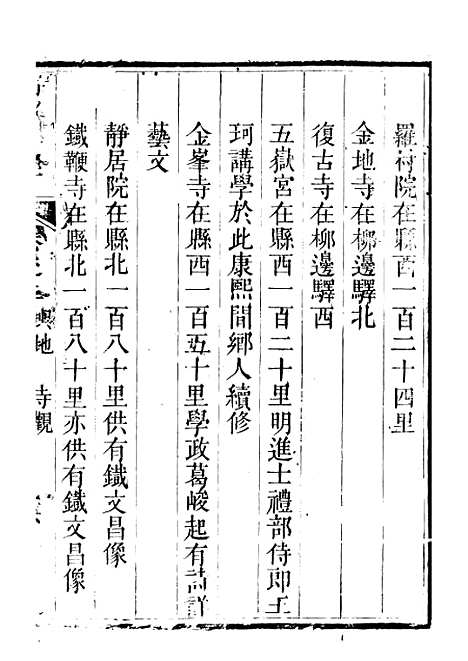 羅村院在縣西一百二十四里
金地寺在柳邊驛北
復古寺在柳邊驛西
五嶽宮在縣西一百二十里明進士禮部侍郎王
珂講學於此康熙間鄉人續修
金峯寺在縣西一百五十里學政葛峻起有詩詳
藝文
靜居院在縣北一百八十里供有鐵文昌像
鐵鞭寺在縣北一百八十里亦供有鐵文昌像
輿地 寺觀